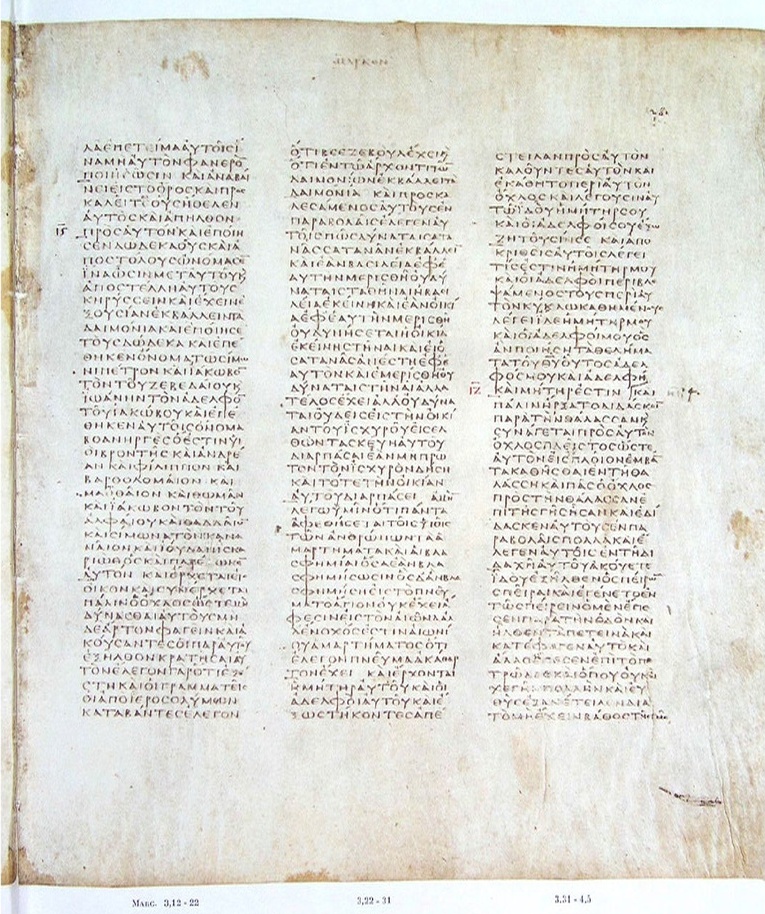 ΜΑΡΚΟΝ
ΛΑΕΠΕΤΕΙΜΑΑΥΤΟΙϹΙ
ΝΑΜΗΑΥΤΟΝΦΑΝΕΡΟ
ΠΟΙΗϹΩϹΙΝ ΚΑΙΑΝΑΒΑΙ
ΝΕΙΕΙϹΤΟΟΡΟϹΚΑΙΠΡΟϹ
ΚΑΛΕΙΤΕΟΥϹΗΘΕΛΕΝ
ΑΥΤΟϹΚΑΙΑΠΗΛΘΟΝ
ΙϚ ΠΡΟϹΑΥΤΟΝΚΑΙΕΠΟΙΗ
ϹΕΝΔΩΔΕΚΑΟΥϹΚΑΙΑ
ΠΟϹΤΟΛΟΥϹΩΝΟΜΑϹΕ
ΙΝΑΩϹΙΝΜΕΤΑΥΤΟΥΚ
ΑΠΟϹΤΕΛΛΗΑΥΤΟΥϹ
ΚΗΡΥϹϹΕΙΝΚΑΙΕΧΕΙΝΕ
ΞΟΥϹΙΑΝΕΚΒΑΛΛΕΙΝΤΑ
ΔΑΙΜΟΝΙΑΚΑΙΕΠΟΙΗϹΕ
ΤΟΥϹΔΩΔΕΚΑ ΚΑΙΕΠΕ
ΘΗΚΕΝΟΝΟΜΑΤΩϹΙΜΩ
ΝΙΠΕΤΡΟΝ ΚΑΙΙΑΚΩΒΟ
ΤΟΝΤΟΥΖΕΒΕΔΑΙΟΥΚ
ΙΩΑΝΗΝΤΟΝΑΔΕΛΦΟ
ΤΟΥΙΑΚΩΒΟΥΚΑΙΕΠΕ
ΘΗΚΕΝΑΥΤΟΙϹΟΝΟΜΑ
ΒΟΑΝΗΡΓΕϹΟΕϹΤΙΝΥΙ
ΟΙΒΡΟΝΤΗϹ ΚΑΙΑΝΔΡΕ
ΑΝ ΚΑΙΦΙΛΙΠΠΟΝ ΚΑΙ
ΒΑΡΘΟΛΟΜΑΙΟΝ ΚΑΙ
ΜΑΘΘΑΙΟΝ ΚΑΙΘΩΜΑΝ
ΚΑΙΙΑΚΩΒΟΝΤΟΝΤΟΥ
ΑΛΦΑΙΟΥΚΑΙΘΑΔΔΑΙΟ
ΚΑΙϹΙΜΩΝΑΤΟΝΚΑΝΑ
ΝΑΙΟΝΚΑΙΙΟΥΔΑΝΙϹΚΑ
ΡΙΩΘΟϹΚΑΙΠΑΡΕΔΩΚΕ
ΑΥΤΟΝ ΚΑΙΕΡΧΕΤΑΙΕΙϹ
ΟΙΚΟΝΚΑΙϹΥΝΕΡΧΕΤΑΙ
ΠΑΛΙΝΟΟΧΛΟϹΩϹΤΕΜΗ
ΔΥΝΑϹΘΑΙΑΥΤΟΥϹΜΗ
ΔΕΑΡΤΟΝΦΑΓΕΙΝΚΑΙΑ
ΚΟΥϹΑΝΤΕϹΟΙΠΑΡΑΥΤΟΥ
ΕΞΗΛΘΟΝΚΡΑΤΗϹΑΙΑΥ
ΤΟΝΕΛΕΓΟΝΓΑΡΟΤΙΕΞΕ
ϹΤΗΚΑΙΟΙΓΡΑΜΜΑΤΕΙϹ
ΟΙΑΠΟΙΕΡΟϹΟΛΥΜΩΝ
ΚΑΤΑΒΑΝΤΕϹΕΛΕΓΟΝ
ΟΤΙΒΕΕΖΕΒΟΥΛΕΧΕΙΚ
ΟΤΙΕΝΤΩΑΡΧΟΝΤΙΤΩ
ΔΑΙΜΟΝΙΩΝΕΚΒΑΛΛΕΙΤΑ
ΔΑΙΜΟΝΙΑ ΚΑΙΠΡΟϹΚΑ
ΛΕϹΑΜΕΝΟϹΑΥΤΟΥϹΕΝ
ΠΑΡΑΒΟΛΑΙϹΕΛΕΓΕΝΑΥ
ΤΟΙϹΠΩϹΔΥΝΑΤΑΙϹΑΤΑ
ΝΑϹϹΑΤΑΝΑΝΕΚΒΑΛΛΕΙ
ΚΑΙΕΑΝΒΑϹΙΛΕΙΑΕΦΕ
ΑΥΤΗΝΜΕΡΙϹΘΗΟΥΔΥ
ΝΑΤΑΙϹΤΑΘΗΝΑΙΗΒΑϹΙ
ΛΕΙΑΕΚΕΙΝΗΚΑΙΕΑΝΟΙΚΙ
ΑΕΦΕΑΥΤΗΝΜΕΡΙϹΘΗ
ΟΥΔΥΝΗϹΕΤΑΙΗΟΙΚΙΑ
ΕΚΕΙΝΗϹΤΗΝΑΙΚΑΙΕΙΟ
ϹΑΤΑΝΑϹΑΝΕϹΤΗΕΦΕ
ΑΥΤΟΝΚΑΙΕΜΕΡΙϹΘΗΟΥ
ΔΥΝΑΤΑΙϹΤΗΝΑΙΑΛΛΑ
ΤΕΛΟϹΕΧΕΙΑΛΛΟΥΔΥΝΑ
ΤΑΙΟΥΔΕΙϹΕΙϹΤΗΝΟΙΚΙ
ΑΝΤΟΥΙϹΧΥΡΟΥΕΙϹΕΛ
ΘΩΝΤΑϹΚΕΥΗΑΥΤΟΥ
ΔΙΑΡΠΑϹΑΙΕΑΝΜΗΠΡΩ
ΤΟΝΤΟΝΙϹΧΥΡΟΝΔΗϹΗ
ΚΑΙΤΟΤΕΤΗΝΟΙΚΙΑΝ
ΑΥΤΟΥΔΙΑΡΠΑϹΕΙ ΑΜΗ
ΛΕΓΩΥΜΙΝΟΤΙΠΑΝΤΑ
ΑΦΕΘΗϹΕΤΑΙΤΟΙϹΥΙΟΙϹ
ΤΩΝΑΝΘΡΩΠΩΝΤΑΑ
ΜΑΡΤΗΜΑΤΑΚΑΙΑΙΒΛΑ
ϹΦΗΜΙΑΙΟϹΑΕΑΝΒΛΑ
ϹΦΗΜΗϹΩϹΙΝΟϹΔΑΝΒΛΑ
ϹΦΗΜΗϹΗΕΙϹΤΟΠΝΕΥ
ΜΑΤΟΑΓΙΟΝΟΥΚΕΧΕΙΑ
ΦΕϹΙΝΕΙϹΤΟΝΑΙΩΝΑΑΛ
ΛΕΝΟΧΟϹΕϹΤΙΝΑΙΩΝΙ
ΟΥΑΜΑΡΤΗΜΑΤΟϹΟΤΙ
ΕΛΕΓΟΝΠΝΕΥΜΑΑΚΑΘΑΡ
ΤΟΝΕΧΕΙ ΚΑΙΕΡΧΟΝΤΑΙ
ΗΜΗΤΗΡΑΥΤΟΥΚΑΙΟΙ
ΑΔΕΛΦΟΙΑΥΤΟΥΚΑΙΕ
ΞΩϹΤΗΚΟΝΤΕϹΑΠΕ
ϹΤΕΙΛΑΝΠΡΟϹΑΥΤΟΝ
ΚΑΛΟΥΝΤΕϹΑΥΤΟΝΚΑΙ
ΕΚΑΘΗΤΟΠΕΡΙΑΥΤΟΝ
ΟΧΛΟϹΚΑΙΛΕΓΟΥϹΙΝΑΥ
ΤΩΙΔΟΥΗΜΗΤΗΡϹΟΥ
ΚΑΙΟΙΑΔΕΛΦΟΙϹΟΥΕΞΩ
ΖΗΤΟΥϹΙΝϹΕ ΚΑΙΑΠΟ
ΚΡΙΘΕΙϹΑΥΤΟΙϹΛΕΓΕΙ
ΤΙϹΕϹΤΙΝΗΜΗΤΗΡΜΟΥ
ΚΑΙΟΙΑΔΕΛΦΟΙΠΕΡΙΒΛΕ
ΨΑΜΕΝΟϹΤΟΥϹΠΕΡΙΑΥ
ΤΟΝΚΥΚΛΩΚΑΘΗΜΕΝΟΥϹ
ΛΕΓΕΙΙΔΕΗΜΗΤΗΡΜΟΥ
ΚΑΙΟΙΑΔΕΛΦΟΙΜΟΥΟϹ
ΑΝΠΟΙΗϹΗΤΑΘΕΛΗΜΑ
ΤΑΤΟΥΘΥΟΥΤΟϹΑΔΕΛ
ΦΟϹΜΟΥΚΑΙΑΔΕΛΦΗ
ΙΖ ΚΑΙΜΗΤΗΡΕϹΤΙΝ ΚΑΙ
ΠΑΛΙΝΗΡΞΑΤΟΔΙΔΑϹΚΕΙ
ΠΑΡΑΤΗΝΘΑΛΑϹϹΑΝΚ
ϹΥΝΑΓΕΤΑΙΠΡΟϹΑΥΤΟΝ
ΟΧΛΟϹΠΛΕΙϹΤΟϹΩϹΤΕ
ΑΥΤΟΝΕΙϹΠΛΟΙΟΝΕΜΒΑ
ΤΑΚΑΘΗϹΘΑΙΕΝΤΗΘΑ
ΛΑϹϹΗΚΑΙΠΑϹΟΟΧΛΟϹ
ΠΡΟϹΤΗΝΘΑΛΑϹϹΑΝΕ
ΠΙΤΗϹΓΗϹΗϹΑΝΚΑΙΕΔΙ
ΔΑϹΚΕΝΑΥΤΟΥϹΕΝΠΑ
ΡΑΒΟΛΑΙϹΠΟΛΛΑΚΑΙΕ
ΛΕΓΕΝΑΥΤΟΙϹΕΝΤΗΔΙ
ΔΑΧΗΑΥΤΟΥΑΚΟΥΕΤΕ
ΙΔΟΥΕΞΗΛΘΕΝΟϹΠΕΙΡΩ
ϹΠΕΙΡΑΙΚΑΙΕΓΕΝΕΤΟΕΝ
ΤΩϹΠΕΙΡΕΙΝΟΜΕΝΕΠΕ
ϹΕΝΠΑΡΑΤΗΝΟΔΟΝΚΑΙ
ΗΛΘΕΝΤΑΠΕΤΕΙΝΑΚΑΙ
ΚΑΤΕΦΑΓΕΝΑΥΤΟΚΑΙ
ΑΛΛΟΕΠΕϹΕΝΕΠΙΤΟΠΕ
ΤΡΩΔΕϹΚΑΙΟΠΟΥΟΥΚΕΙ
ΧΕΓΗΝΠΟΛΛΗΝΚΑΙΕΥ
ΘΥϹΕΞΑΝΕΤΕΙΛΕΝΔΙΑ
ΤΟΜΗΕΧΕΙΝΒΑΘΟϹΤΗϹΓΗϹ
Marc. 3,12 - 22
3,22 - 31
3,31 - 4,5